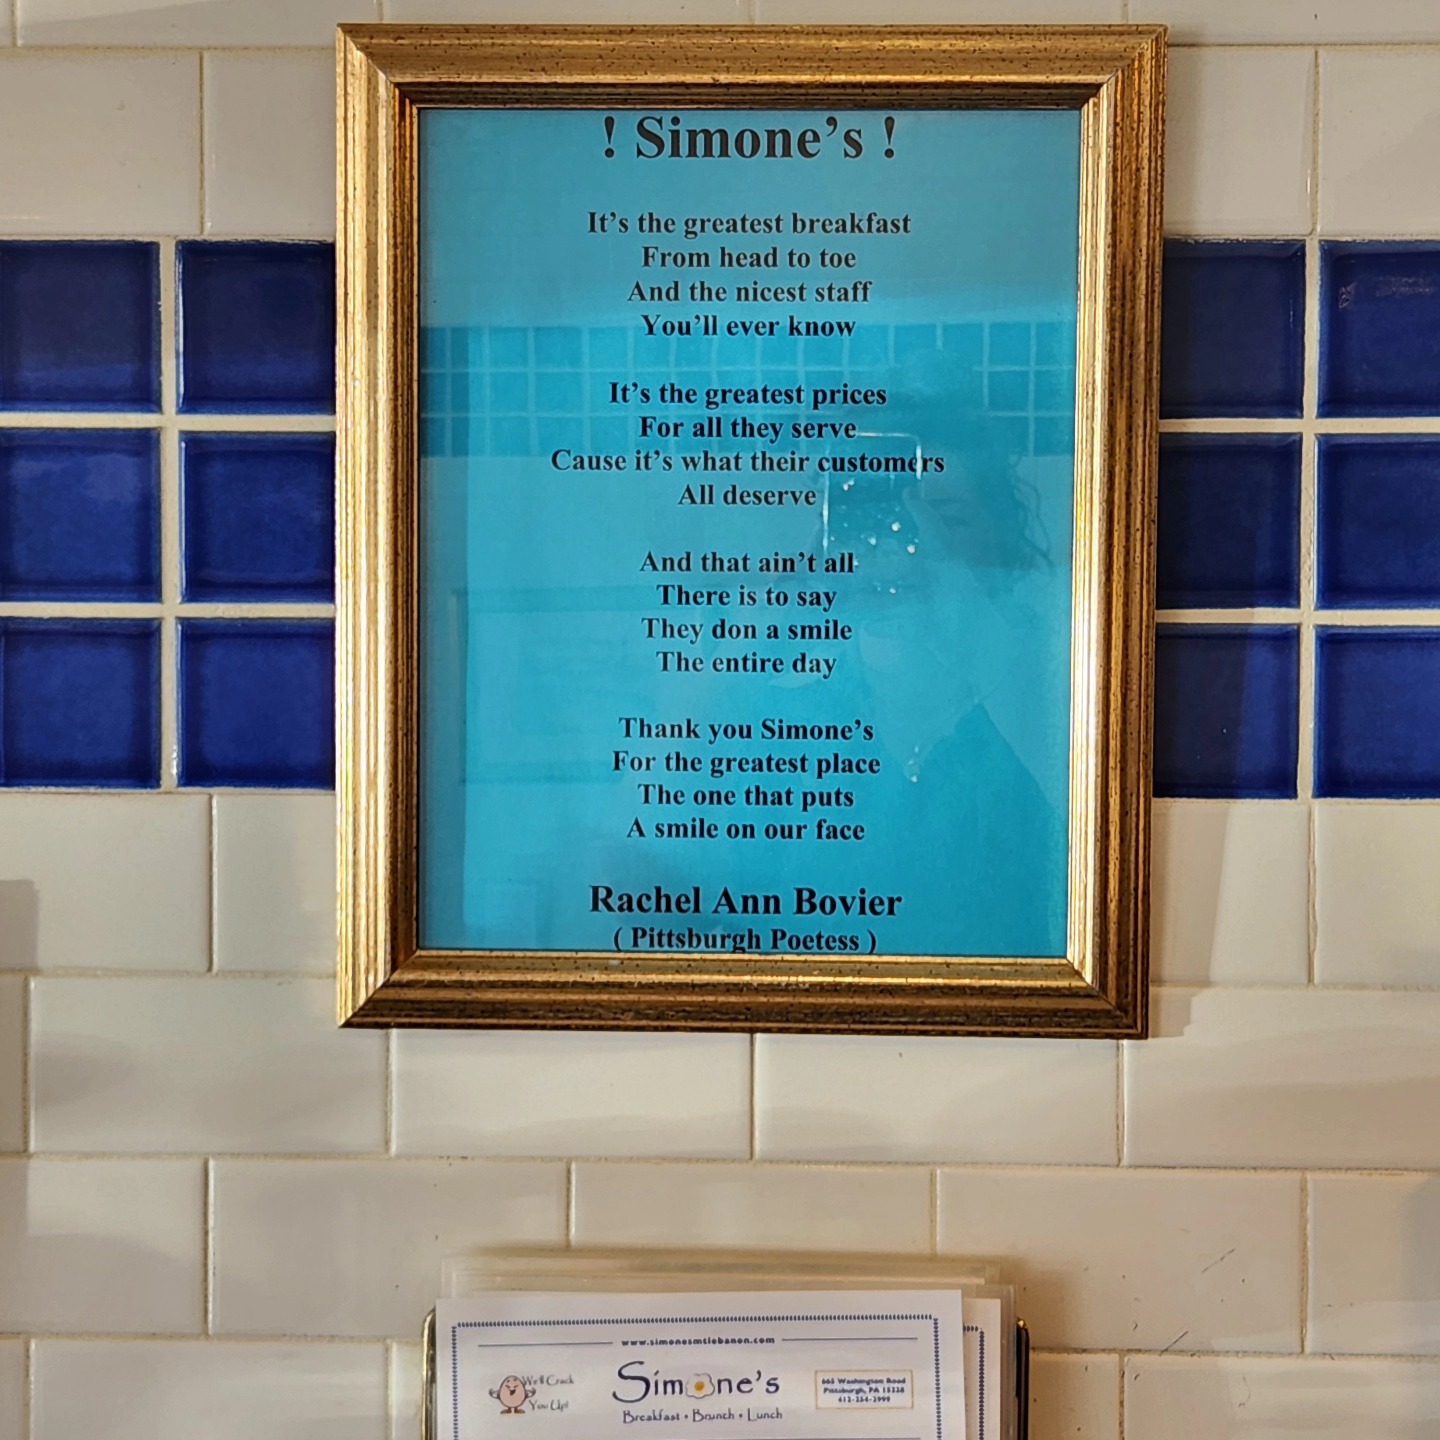 ! Simone's !
It's the greatest breakfast
From head to toe
And the nicest staff
You'll ever know
It's the greatest prices
For all they serve
Cause it's what their customers
All deserve
And that ain't all
There is to say
They don a smile
The entire day
Thank you Simone's
For the greatest place
The one that puts
A smile on our face
Rachel Ann Bovier
( Pittsburgh Poetess )
www.simonesmtlebanon.com
We'll Crack
You Up!
Simone's
Breakfast • Brunch • Lunch
Washington Road
Pittsburgh, PA 15228